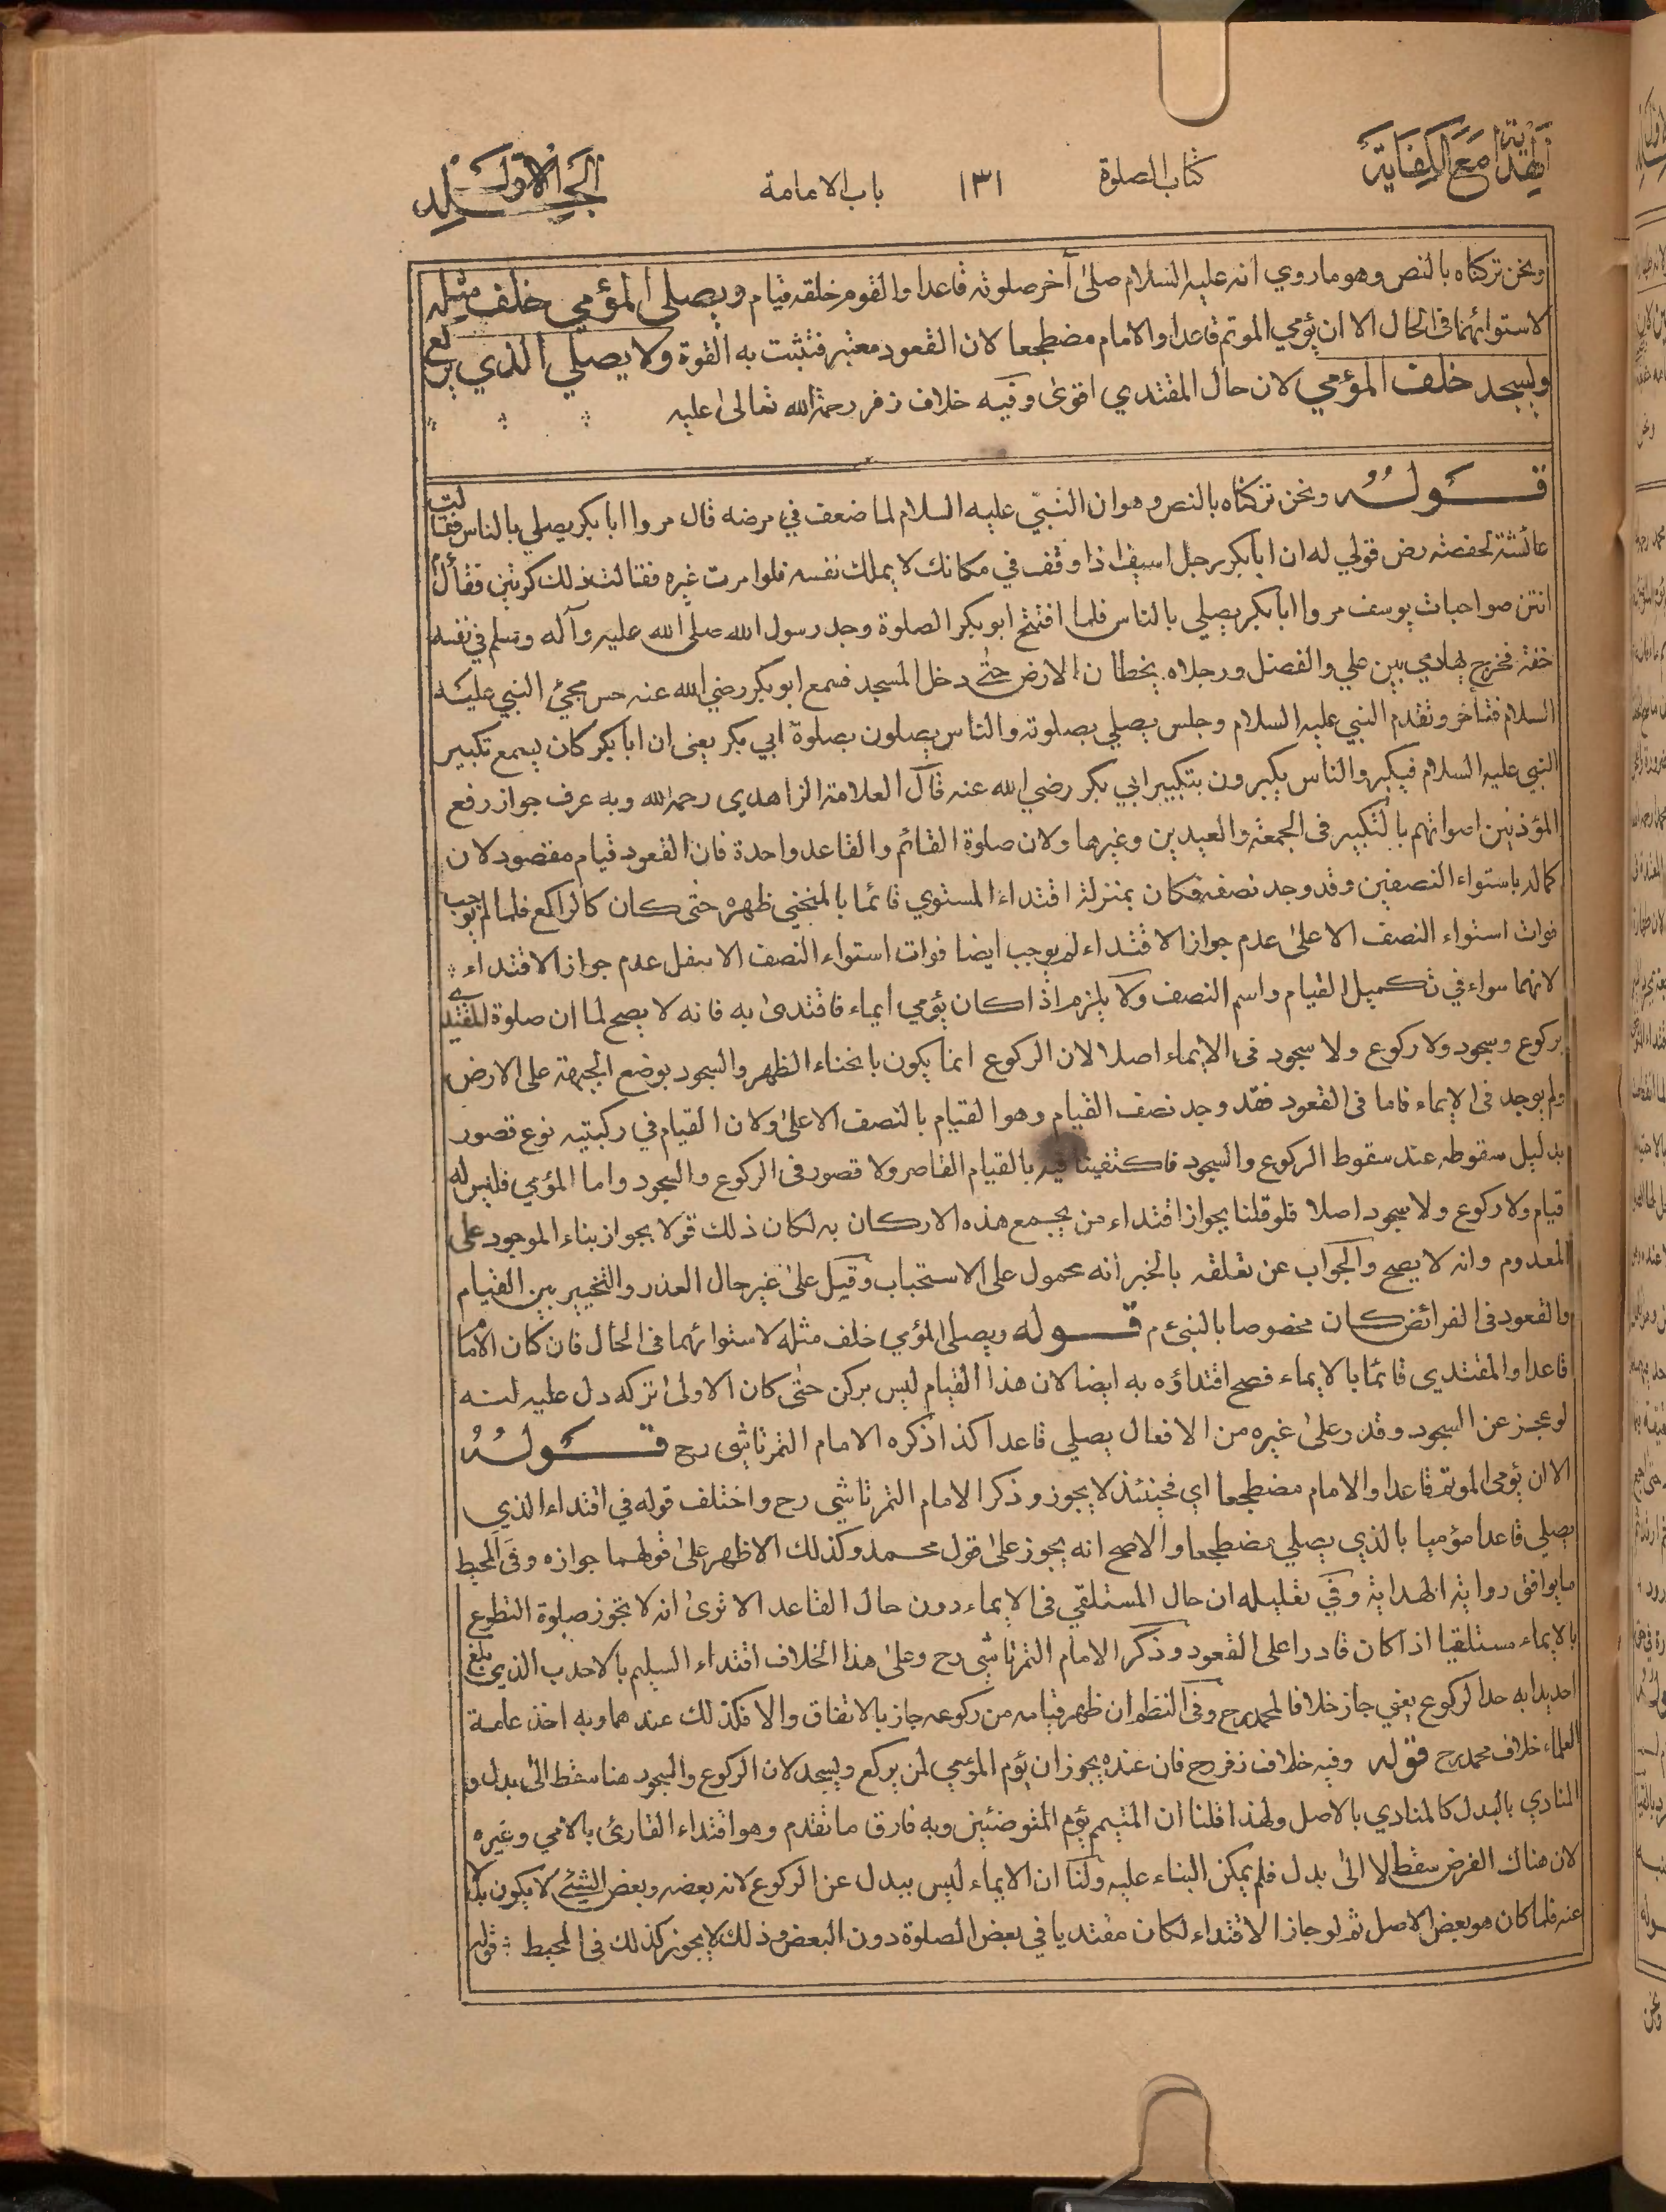 الهداية مع الكفاية
كتاب الصلوة
١٣١
باب الامامة
الجلد الاول
ونحن تركناه بالنص وهو ما روي انه عليه السلام صلىٰ آخر صلوته قاعدا والقوم خلفه قيام ويصلي المؤمي خلف مثله
لاستوائهما فى الحال الا ان يؤمي الموتم قاعدا والامام مضطجعا لان القعود معتبر فتثبت به القوة ولا يصلي الذي يركع
ويسجد خلف المؤمي لان حال المقتدي اقوىٰ وفيه خلاف زفر رحمة الله تعالىٰ عليه
قوله ونحن تركناه بالنص وهو ان النبيّ عليه السلام لما ضعف في مرضه قال مروا ابا بكر يصلي بالناس فقالت
عائشة لحفصة رض قولي له ان ابا بكر رجل اسيف اذا وقف في مكانك لا يملك نفسه فلو امرت غيره فقالت ذلك كرتين فقال
انتن صواحبات يوسف مروا ابا بكر يصلي بالناس فلما افتتح ابو بكر الصلوة وجد رسول الله صلى الله عليه وآله وسلم في نفسه
خفة فخرج يهادي بين علي والفضل ورجلاه يخطان الارض حتى دخل المسجد فسمع ابو بكر رضي الله عنه حس مجئ النبي عليه
السلام فتأخر وتقدم النبي عليه السلام وجلس يصلي بصلوته والناس يصلون بصلوة ابي بكر يعنى ان ابا بكر كان يسمع تكبير
النبي عليه السلام فيكبر والناس يكبرون بتكبير ابي بكر رضي الله عنه قال العلامة الزاهدي رحمه الله وبه عرف جواز رفع
المؤذنين اصواتهم بالتكبير فى الجمعة والعيدين وغيرها ولان صلوة القائم والقاعد واحدة فان القعود قيام مقصود لان
كماله باستواء النصفين وقد وجد نصفه فكان بمنزلة اقتداء المستوي قائما بالمنحني ظهره حتى كان كالراكع فلما لم يوجب
فوات استواء النصف الاعلىٰ عدم جواز الاقتداء لم يوجب ايضا فوات استواء النصف الاسفل عدم جواز الاقتداء
لانهما سواء في تكميل القيام واسم النصف ولا يلزم اذا كان يؤمي ايماء فاقتدىٰ به فانه لا يصح لما ان صلوة المقتدي
بركوع وسجود ولا ركوع ولا سجود فى الايماء اصلا لان الركوع انما يكون بانحناء الظهر والسجود بوضع الجبهة على الارض
ولم يوجد فى الايماء فاما فى القعود فقد وجد نصف القيام وهو القيام بالنصف الاعلىٰ ولان القيام في ركبتيه نوع قصور
بدليل سقوطه عند سقوط الركوع والسجود فاكتفينا فيه بالقيام القاصر ولا قصور فى الركوع والسجود واما المؤمي فليس له
قيام ولا ركوع ولا سجود اصلا فلو قلنا بجواز اقتداء من يجمع هذه الاركان به لكان ذلك قولا بجواز بناء الموجود على
المعدوم وانه لا يصح والجواب عن تعلقه بالخبر انه محمول على الاستحباب وقيل علىٰ غير حال العذر والتخيير بين القيام
والقعود فى الفرائض كان مخصوصا بالنبي م قوله ويصلي المؤمي خلف مثله لاستوائهما فى الحال فان كان الامام
قاعدا والمقتدي قائما بالايماء فصح اقتداؤه به ايضا لان هذا القيام ليس بركن حتى كان الاولىٰ تركه دل عليه انه
لو عجز عن السجود وقدر علىٰ غيره من الافعال يصلي قاعدا كذا ذكره الامام التمرتاشي رح قوله
الا ان يؤمي الموتم قاعدا والامام مضطجعا اي فحينئذ لا يجوز وذكر الامام التمرتاشي رح واختلف قوله في اقتداء الذي
يصلي قاعدا مؤميا بالذي يصلي مضطجعا والاصح انه يجوز علىٰ قول محمد وكذلك الاظهر علىٰ قولهما جوازه وفى المحيط
ما يوافق رواية الهداية وفي تعليله ان حال المستلقي فى الايماء دون حال القاعد الا ترىٰ انه لا تجوز صلوة التطوع
بالايماء مستلقيا اذا كان قادرا على القعود وذكر الامام التمرتاشي رح وعلىٰ هذا الخلاف اقتداء السليم بالاحدب الذي بلغ
احديدابه حد الركوع يعني جاز خلافا لمحمد رح وفى النظم ان ظهر قيامه من ركوعه جاز بالاتفاق والا فكذلك عندهما وبه اخذ عامة
العلماء خلاف محمد رح قوله وفيه خلاف زفر رح فان عنده يجوز ان يؤم المؤمي لمن يركع ويسجد لان الركوع والسجود هنا سقط الىٰ بدل و
المتادي بالبدل كالمتادي بالاصل ولهذا قلنا ان المتيمم يؤم المتوضئين وبه فارق ما تقدم وهو اقتداء القارئ بالامي وغيره
لان هناك الفرض سقط لا الىٰ بدل فلم يمكن البناء عليه ولنا ان الايماء ليس ببدل عن الركوع لانه بعضه وبعض الشيئ لا يكون بدلا
عنه فلما كان هو بعض الاصل ثم لو جاز الاقتداء لكان مقتديا في بعض الصلوة دون البعض وذلك لا يجوز كذلك فى المحيط قوله